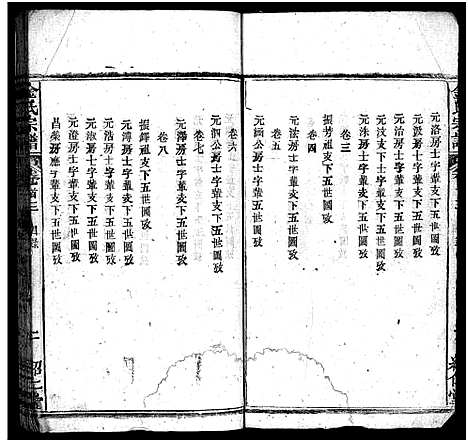 元洛房士字輩支下五世圖攷
元治房士字輩支下五世圖攷
元洙房士字輩支下五世圖攷
卷三
振芳祖支下五世圖攷
卷四
元法房士字輩支下五世圖攷
卷五
元涵公房士字輩支下五世圖攷
卷六
元泗公房士字輩支下五世圖攷
卷七
元澤房士字輩支下五世圖攷
卷八
振鐸祖支下五世圖攷
元溥房士字輩支下五世圖攷
元浩房士字輩支下五世圖攷
元澄房士字輩支下五世圖攷
昌榮房應字輩支下五世圖攷
金氏宗譜
卷首三
目錄
二